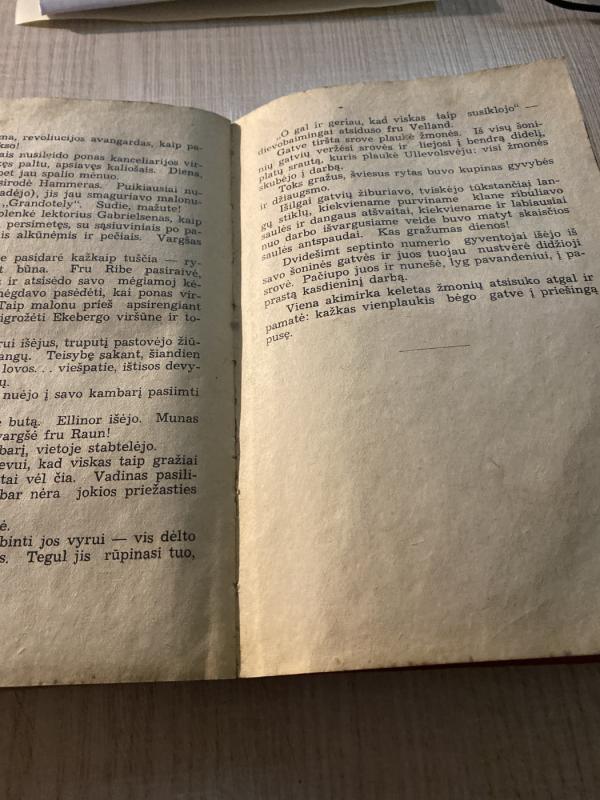 ma, revoliucijos avangardas, kaip pa-
kso!
ais nusileido ponas kanceliarijos vir-
ęs paltu, apsiavęs kaliošais. Diena,
pet jau spalio mėnuo.
sirodė Hammeras. Puikiausiai nu-
adėjo), jis jau smaguriavo malonu-
„Grandotely“. Sudie, mažute!
plenkė lektorius Gabrielsenas, kaip
persimetęs, su sąsiuviniais po pa-
is alkūnėmis ir pečiais. Vargšas
e pasidarė kažkaip tuščia — ry-
t būna. Fru Ribe pasiraivė,
ir atsisėdo savo mėgiamoj kė-
mėgdavo pasėdėti, kai ponas vir-
Taip malonu prieš apsirengiant
igrožėti Ekebergo viršūne ir to-
rui išėjus, truputį pastovėjo žiū-
angų. Teisybę sakant, šiandien
lovos. . . viešpatie, ištisos devy-
ų.
nuėjo į savo kambarį pasiimti
e butą. Ellinor išėjo. Munas
vargšė fru Raun!
barį, vietoje stabtelėjo.
evui, kad viskas taip gražiai
tai vėl čia. Vadinas pasili-
bar nėra jokios priežasties
ė.
binti jos vyrui — vis dėlto
s. Tegul jis rūpinasi tuo,
„O gal ir geriau, kad viskas taip susiklojo“ —
dievobaimingai atsiduso fru Velland.
Gatve tiršta srove plaukė žmonės. Iš visų šoni-
nių gatvių veržėsi srovės ir liejosi į bendrą didelį,
platų srautą, kuris plaukė Ullevolsvėju: visi žmonės
skubėjo į darbą.
Toks gražus, šviesus rytas buvo kupinas gyvybės
ir džiaugsmo.
Išilgai gatvių žiburiavo, tviskėjo tūkstančiai lan-
gų stiklų, kiekviename purviname klane ribuliavo
saulės ir dangaus atšvaitai, kiekviename ir labiausiai
nuo darbo išvargusiame veide buvo matyt skaisčios
saulės antspaudai. Kas gražumas dienos!
Dvidešimt septinto numerio gyventojai išėjo iš
savo šoninės gatvės ir juos tuojau nustvėrė didžioji
srovė. Pačiupo juos ir nunešė, lyg pavandeniui, į pa-
prastą kasdieninį darbą.
Viena akimirka keletas žmonių atsisuko atgal ir
pamatė: kažkas vienplaukis bėgo gatve į priešingą
pusę.